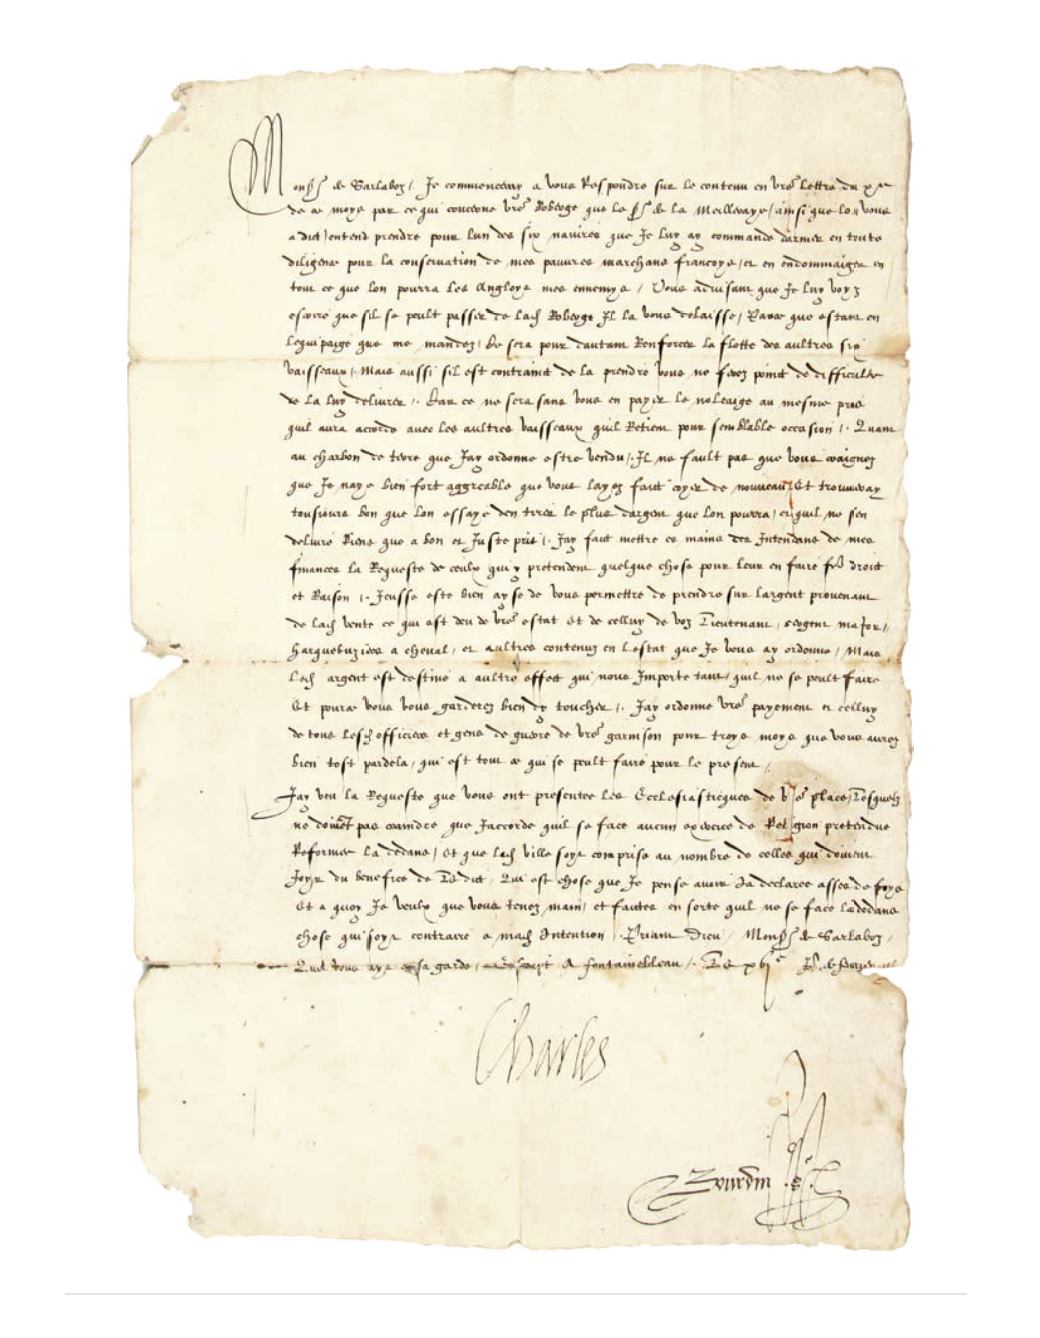 Mons<sup>r</sup> de Sarlaboz, Je commenceray a vous Respondre sur le contenu en vr̃e lettre du x<sup>e</sup>
de ce moys par ce qui concerne vr̃e Roberge que le s<sup>r</sup> de la Meilleraye, ainsi que lon vous
a dict, entend prendre pour lun des six navires que Je luy ay commandé darmer en toute
diligence pour la conservation de mes pauvres marchans francoys, et en endommaiger en
tout ce que lon pourra les Angloys mes ennemys, Vous advisant que Je luy
escrire que sil se peult passer de lad Roberge Il la vous delaisse, Parce que estant en
lequipaige que me mandez, Ce sera pour dautant Renforcer la flotte des aultres six
vaisseaux, Mais aussi sil est contrainct de la prendre vous ne ferez poinct de difficulte
de la luy delivrer. Car ce ne sera sans vous en payer le noleaige au mesme pris
quil aura accorde avec les aultres vaisseaux quil Retient pour semblable occasion. Quant
au charbon de terre que Jay ordonne estre vendu, Il ne fault pas que vous craignez
que Je naye bien fort aggreable que vous layez faict cryer de nouveau, Et trouveray
tousiours bon que lon essaye den tirer le plus dargent que lon pourra, et quil ne sen
delivre Riens que a bon et Juste pris. Jay faict mettre es mains des Intendans de mes
finances la Requeste de ceulx qui y pretendent quelque chose pour leur en faire droict
et Raison. Jeusse este bien ayse de vous permettre de prendre sur largent provenant
de lad vente ce qui est deu de vr̃e estat Et de celluy de voz Lieutenant, sergent major,
harquebuziers a cheval, et aultres contenuz en lestat que Je vous ay ordonne, Mais
led argent est destine a aultre effect qui nous Importe tant, quil ne se peult faire
Et pource vous vous garderez bien dy toucher. Jay ordonne vr̃e payement et celluy
de tous lesd officiers et gens de guerre de vr̃e garnison pour troys moys que vous aurez
bien tost pardela, qui est tout ce qui se peult faire pour le present,
Jay veu la Requeste que vous ont presentee les Ecclesiasticques de vr̃e place, Lesquelz
ne doivent pas craindre que Jaccorde quil se face aucun exercice de Religion pretendue
Reformee la dedans, Et que lad ville soyt comprise au nombre de celles qui doivent
Joyr du benefice de Ledict, Qui est chose que Je pense avoir Ja declaree asses de foys
Et a quoy Je veulx que vous tenez main, et faictes en sorte quil ne se face la dedans
chose qui soyt contraire a mad Intention. Priant Dieu, Mons<sup>r</sup> de Sarlaboz,
Quil vous ayt en sa garde, Escript A fontainebleau, Le xvj<sup>e</sup> Jo<sup>r</sup> de
Charles
Bourdin